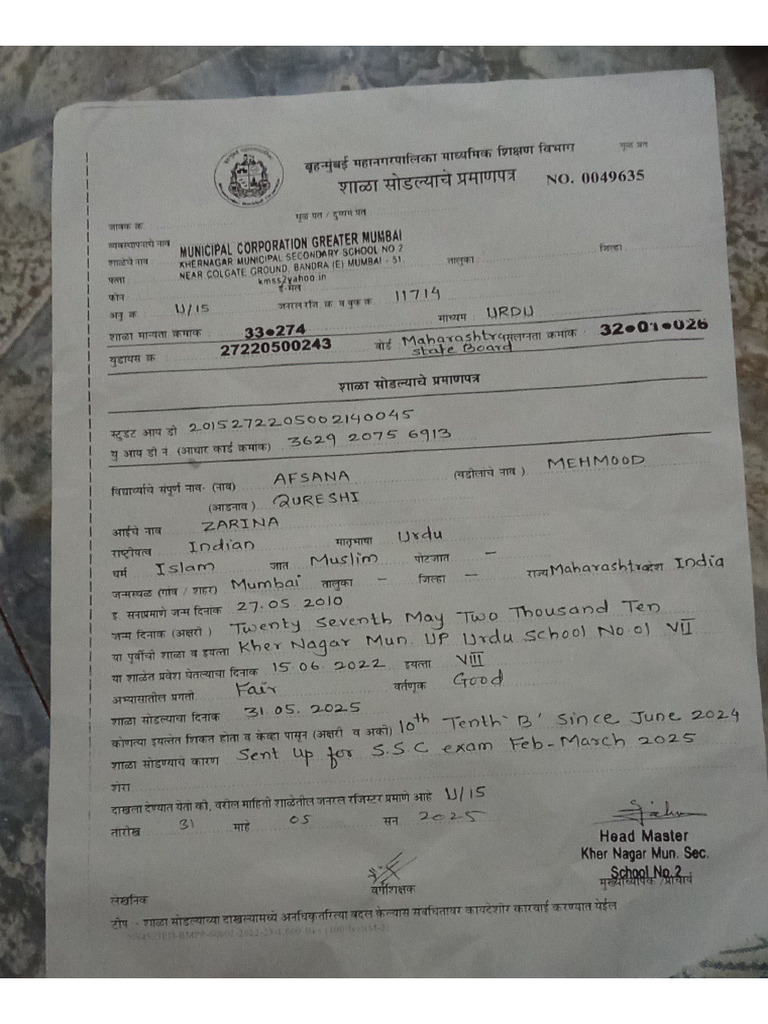 बृहन्मुंबई महानगरपालिका माध्यमिक शिक्षण विभाग मुळ प्रत
शाळा सोडल्याचे प्रमाणपत्र NO. 0049635
मूळ प्रत / दुय्यम प्रत
जावक क्र.
व्यवस्थापनाचे नाव MUNICIPAL CORPORATION GREATER MUMBAI
शाळेचे नाव KHERNAGAR MUNICIPAL SECONDARY SCHOOL NO 2
पत्ता NEAR COLGATE GROUND, BANDRA (E) MUMBAI - 51. तालुका : जिल्हा :
फोन kmss2yahoo.in ई-मेल
अनु क्र. U/15 जनरल रजि क्र व बुक क्र. 11714 माध्यम : URDU
शाळा मान्यता क्रमांक : 33.274 बोर्ड Maharashtra state Board संलग्नता क्रमांक : 32.01.026
युडायस क्र 27220500243
शाळा सोडल्याचे प्रमाणपत्र
स्टुडंट आय डी 2015272205002140045
यु आय डी नं. (आधार कार्ड क्रमांक) 3629 2075 6913
विद्यार्थ्याचे संपूर्ण नाव- (नाव) AFSANA (वडीलांचे नाव ) MEHMOOD
(आडनाव) QURESHI
आईचे नाव ZARINA
राष्ट्रीयत्व Indian मातृभाषा Urdu
धर्म Islam जात Muslim पोटजात -
जन्मस्थळ (गांव / शहर) Mumbai तालुका - जिल्हा - राज्य Maharashtra देश India
इ. सनाप्रमाणे जन्म दिनांक 27.05 2010
जन्म दिनांक (अक्षरी ) Twenty seventh May Two Thousand Ten
या पूर्वीची शाळा व इयत्ता Kher Nagar Mun. UP Urdu School No.01 VII
या शाळेत प्रवेश घेतल्याचा दिनांक 15.06.2022 इयत्ता VIII
अभ्यासातील प्रगती Fair वर्तणूक Good
शाळा सोडल्याचा दिनांक 31.05.2025
कोणत्या इयत्तेत शिकत होता व केव्हा पासून (अक्षरी व अंकी) 10th Tenth 'B' Since June 2024
शाळा सोडण्याचे कारण Sent up for S.S.C exam Feb-March 2025
शेरा
दाखला देण्यात येतो की, वरील माहिती शाळेतील जनरल रजिस्टर प्रमाणे आहे U/15
तारीख 31 माहे 05 सन 2025
Head Master
Kher Nagar Mun. Sec.
School No.2
लेखनिक वर्गशिक्षक मुख्याध्यापक /प्राचार्य
टीप - शाळा सोडल्याच्या दाखल्यामध्ये अनधिकृतरित्या बदल केल्यास संबंधितावर कायदेशीर कारवाई करण्यात येईल